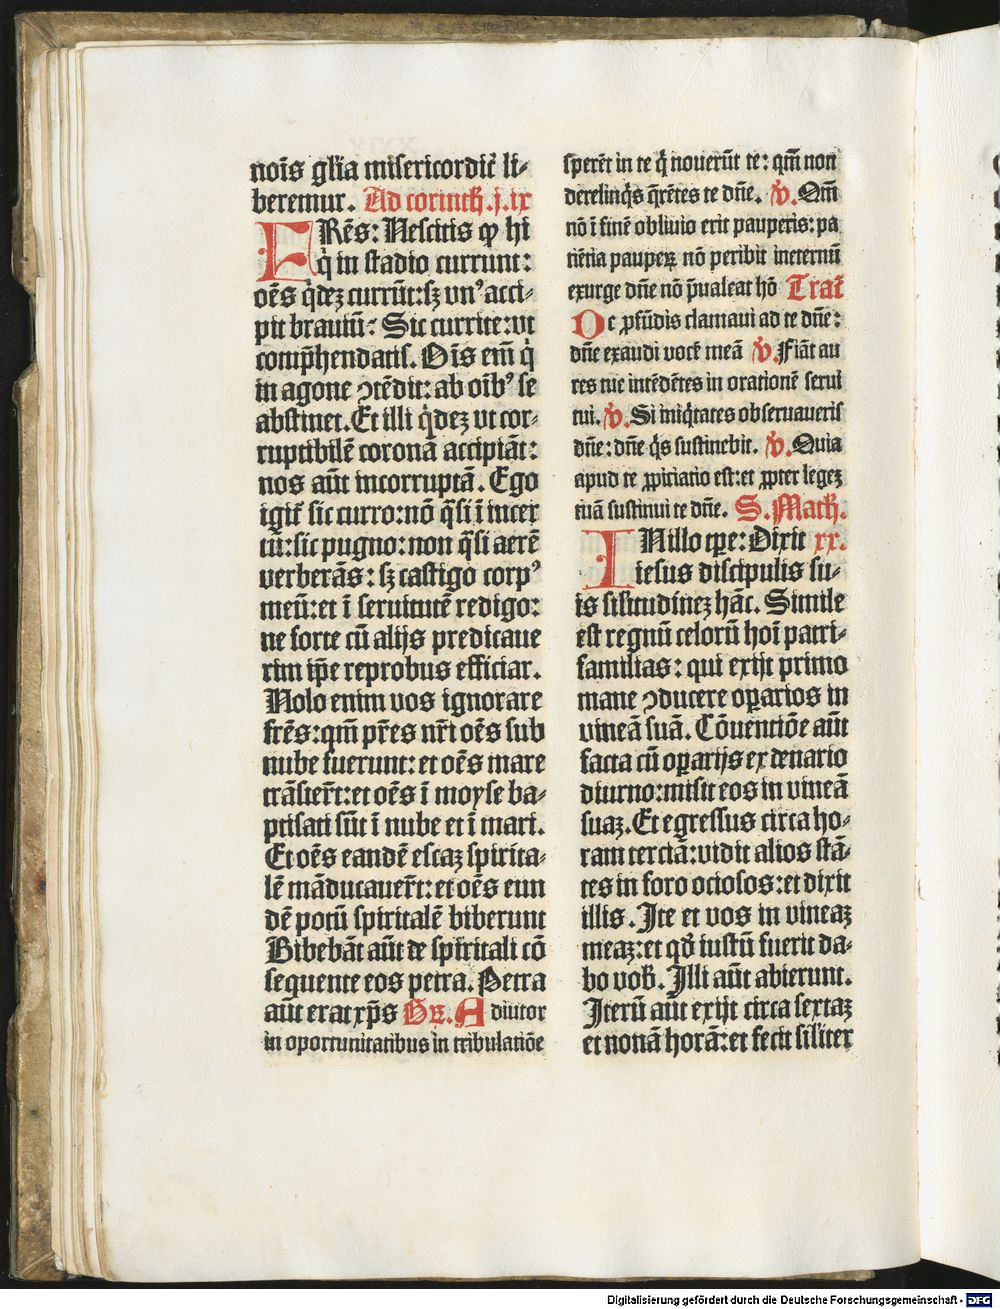 noīs gl̄ia misericordit̃ li-
beremur. Ad corinth̃.j.ix
FRēs: Nescitis ꝙ hi
q̇ in stadio currunt:
oēs q̇dez currūt: sꝫ vn᾽ acci-
pit brauiū? Sic currite: vt
comp̄hendatis. Oīs em̄ q̇
in agone ↄtēdit: ab oīb᾽ se
abstinet. Et illi q̇dez vt cor-
ruptibilē coronā accipiāt:
nos aūt incorruptā. Ego
igit̃ sic curro: nō q̄si ī incer
tū: sic pugno: non q̄si aerē
verberās: sꝫ castigo corp᾽
meū: et ī seruitutē redigo:
ne forte cū alijs predicaue
rim ip̄e reprobus efficiar.
Nolo enim vos ignorare
frēs: qm̄ pr̄es nr̄i oēs sub
nube fuerunt: et oēs mare
trāsier̄t: et oēs ī moyse ba-
ptisati sūt ī nube et ī mari.
Et oēs eandē escaz spirita-
lē māducauer̄t: et oēs eun
dē potū spiritalē biberunt
Bibebāt aūt de spiritali cō
sequente eos petra. Petra
aūt erat xp̄s Gꝛ. Adiutor
in oportunitatibus in tribulatiōe
sperēt in te q̇ nouerūt te: qm̄ non
derelinq̇s q̄rētes te dn̄e. v̇. Qm̄
nō ī finē obliuio erit pauperis: pa
tiētia pauperꝝ nō peribit ineternū
exurge dn̄e nō p̄ualeat hō Tract̃
De ꝓfūdis clamaui ad te dn̄e:
dn̄e exaudi vocē meā v̇. Fiāt au
res tue intēdētes in orationē serui
tui. v̇. Si iniq̇tates obseruaueris
dn̄e: dn̄e q̇s sustinebit. v̇. Quia
apud te ꝓpitiatio est: et ꝓpter legez
tuā sustinui te dn̄e. S. Math.
IN illo tꝑe: Dixit xx.
iesus discipulis su-
is sił̄itudinez hāc. Simile
est regnū celorū hoī patri-
familias: qui exijt primo
mane ↄducere oꝑarios in
vineā suā. Cōuentiōe aūt
facta cū oꝑarijs ex denario
diurno: misit eos in vineā
suaz. Et egressus circa ho-
ram terciā: vidit alios stā-
tes in foro ociosos: et dixit
illis. Ite et vos in vineaz
meaz: et qđ iustū fuerit da-
bo vob̄. Illi aūt abierunt.
Iterū aūt exijt circa sextaz
et nonā horā: et fecit sił̄iter
Digitalisierung gefördert durch die Deutsche Forschungsgemeinschaft - DFG